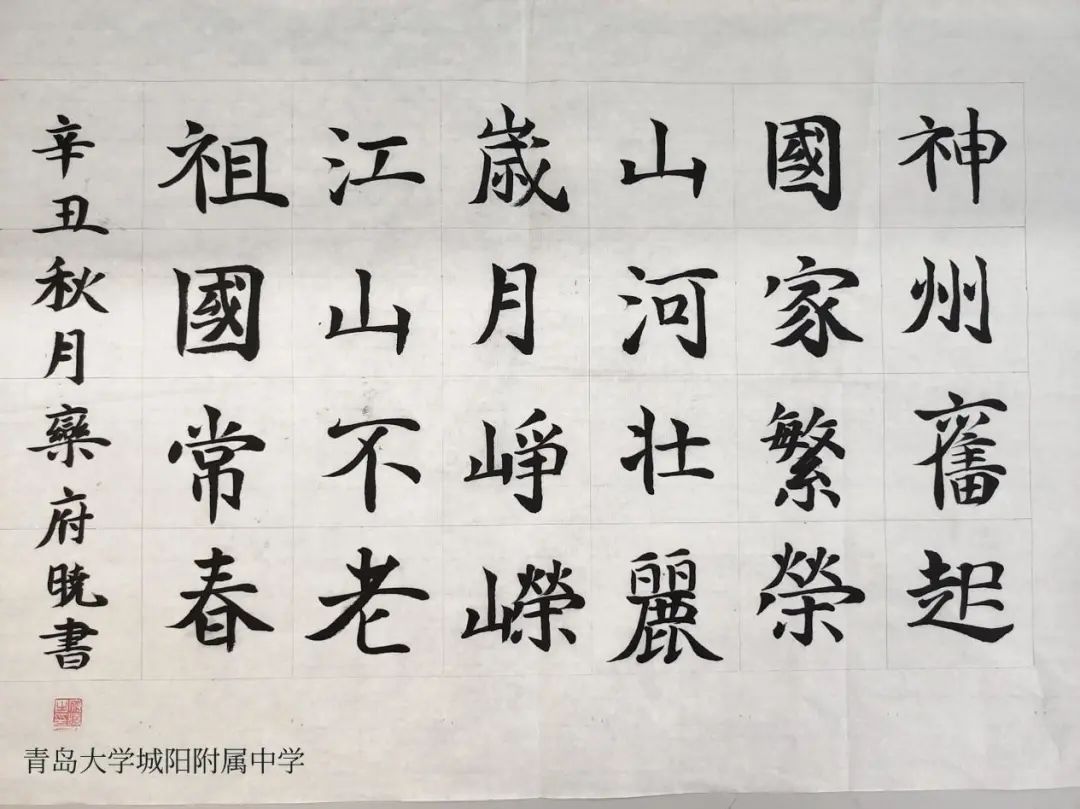 神州奮起
國家繁榮
山河壯麗
歲月崢嶸
江山不老
祖國常春
辛丑秋月欒府曉書
青岛大学城阳附属中学